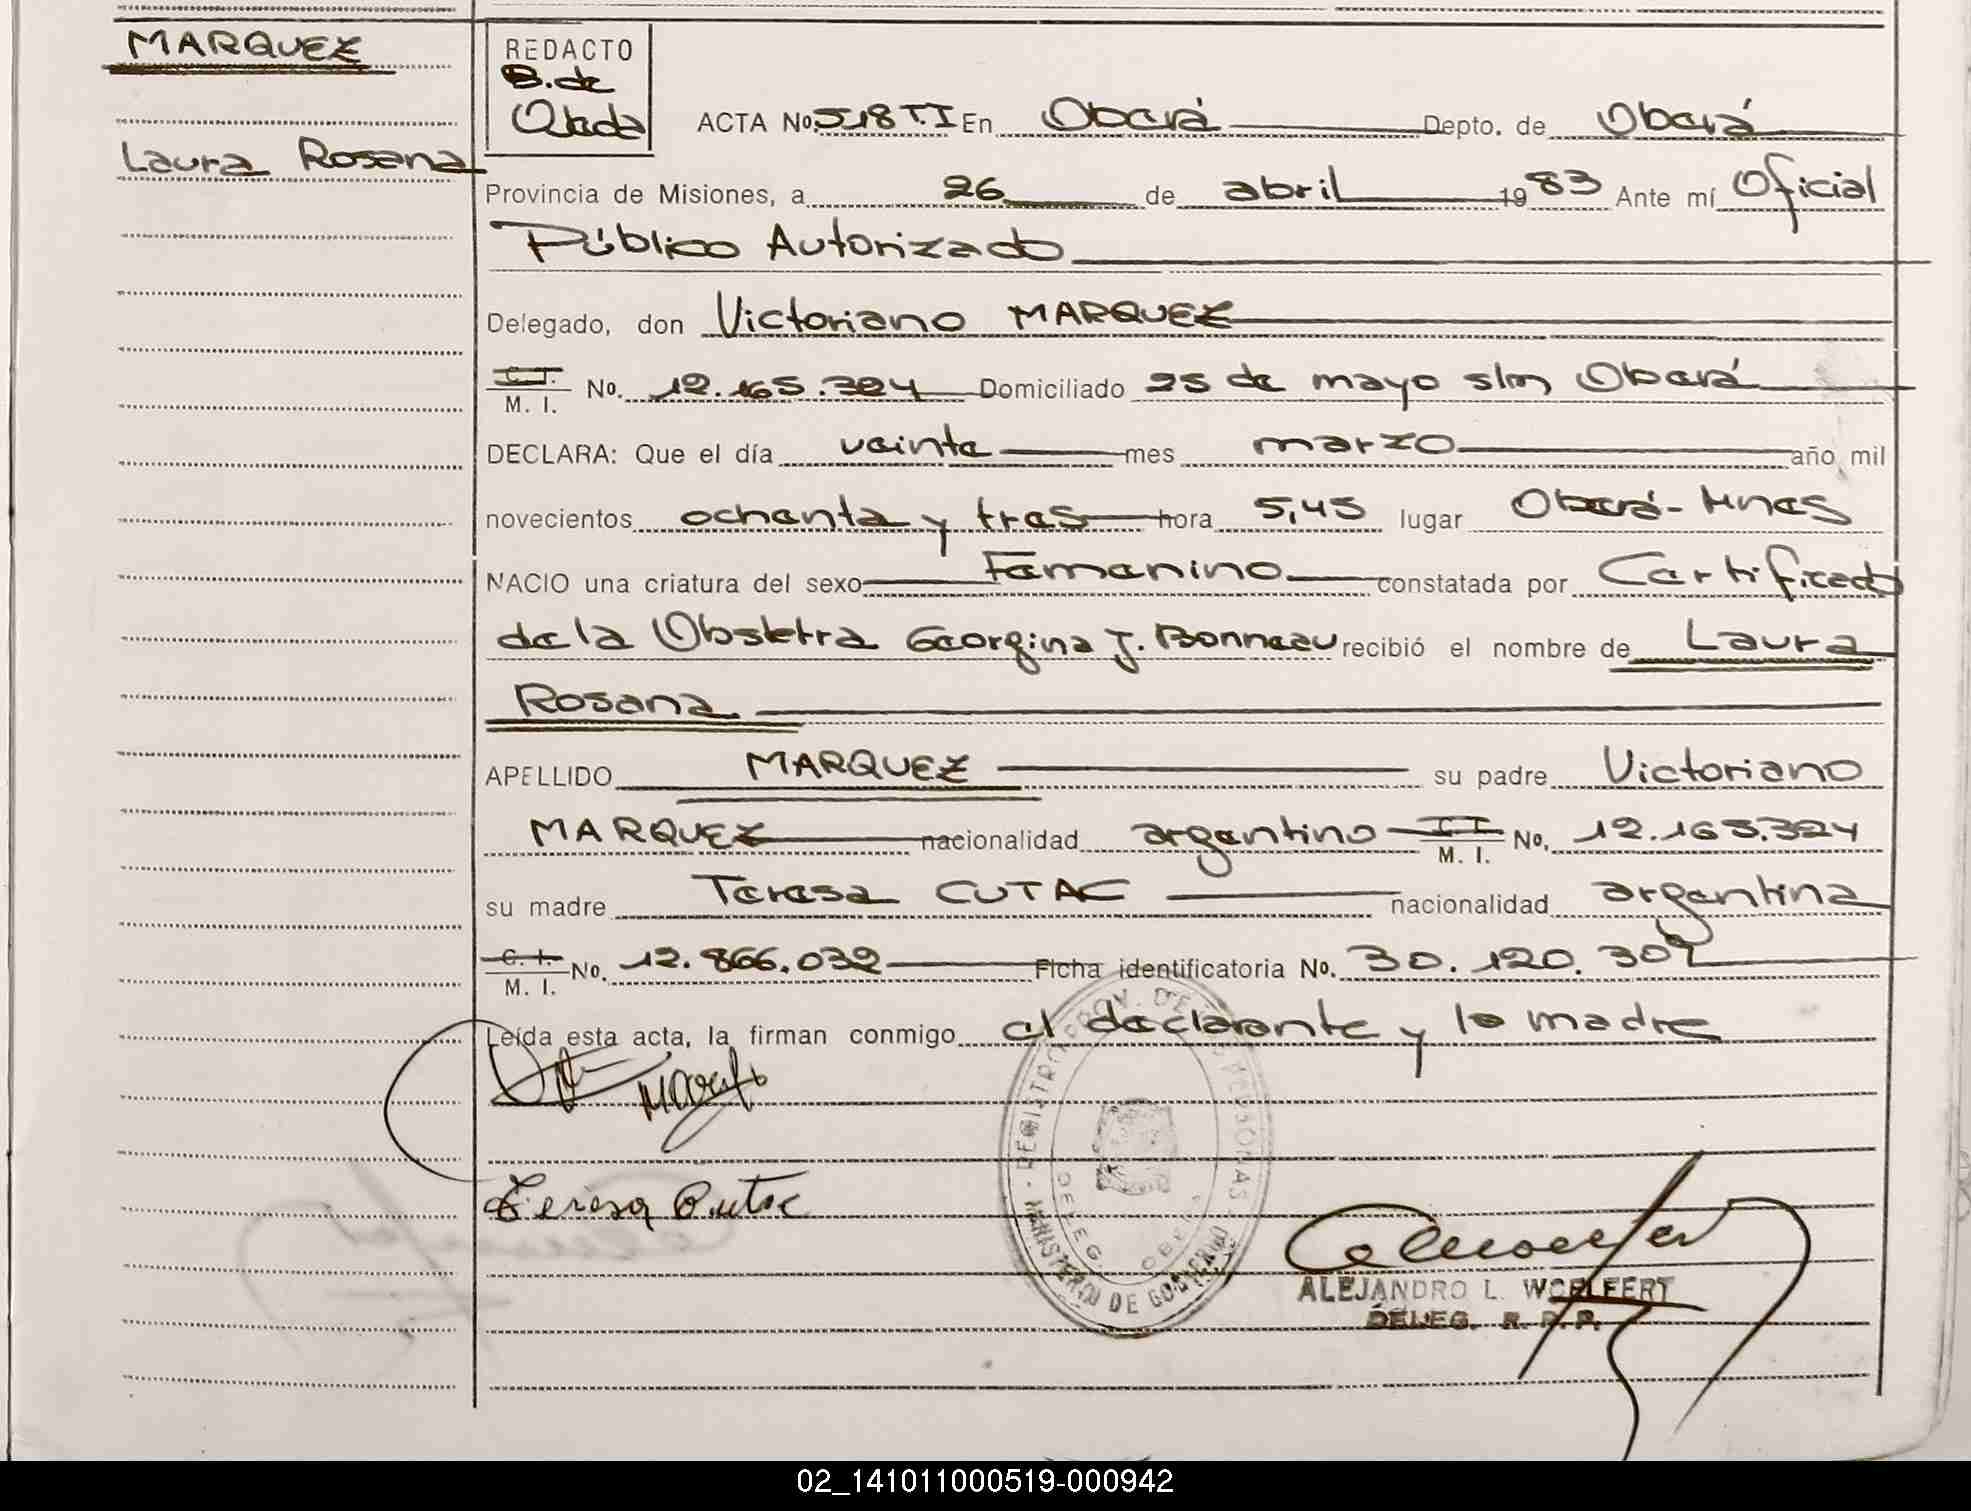 MARQUEZ
Laura Rosana
REDACTO
B. de
ACTA No. 518 T.I En Oberá Depto. de Oberá
Provincia de Misiones, a 26 de abril 1983 Ante mí Oficial
Público Autorizado
Delegado, don Victoriano MARQUEZ
C. I.
M. I. No. 12.165.324 Domiciliado 25 de mayo s/n Oberá
DECLARA: Que el día veinte mes marzo año mil
novecientos ochenta y tres hora 5,45 lugar Oberá - Mnes
NACIO una criatura del sexo Femenino constatada por Certificado
de la Obstetra Georgina J. Bonneau recibió el nombre de Laura
Rosana
APELLIDO MARQUEZ su padre Victoriano
MARQUEZ nacionalidad argentino M. I. No. 12.165.324
su madre Teresa CUTAC nacionalidad argentina
C. I.
M. I. No. 12.866.032 Ficha identificatoria No. 30.120.302
Leída esta acta, la firman conmigo el declarante y la madre
Teresa Cutac
REGISTRO PROV. DE LAS PERSONAS
MINISTERIO DE GOBIERNO
DELEG. OBERA
ALEJANDRO L. WOELFERT
DELEG. R. P. P.
02_141011000519-000942